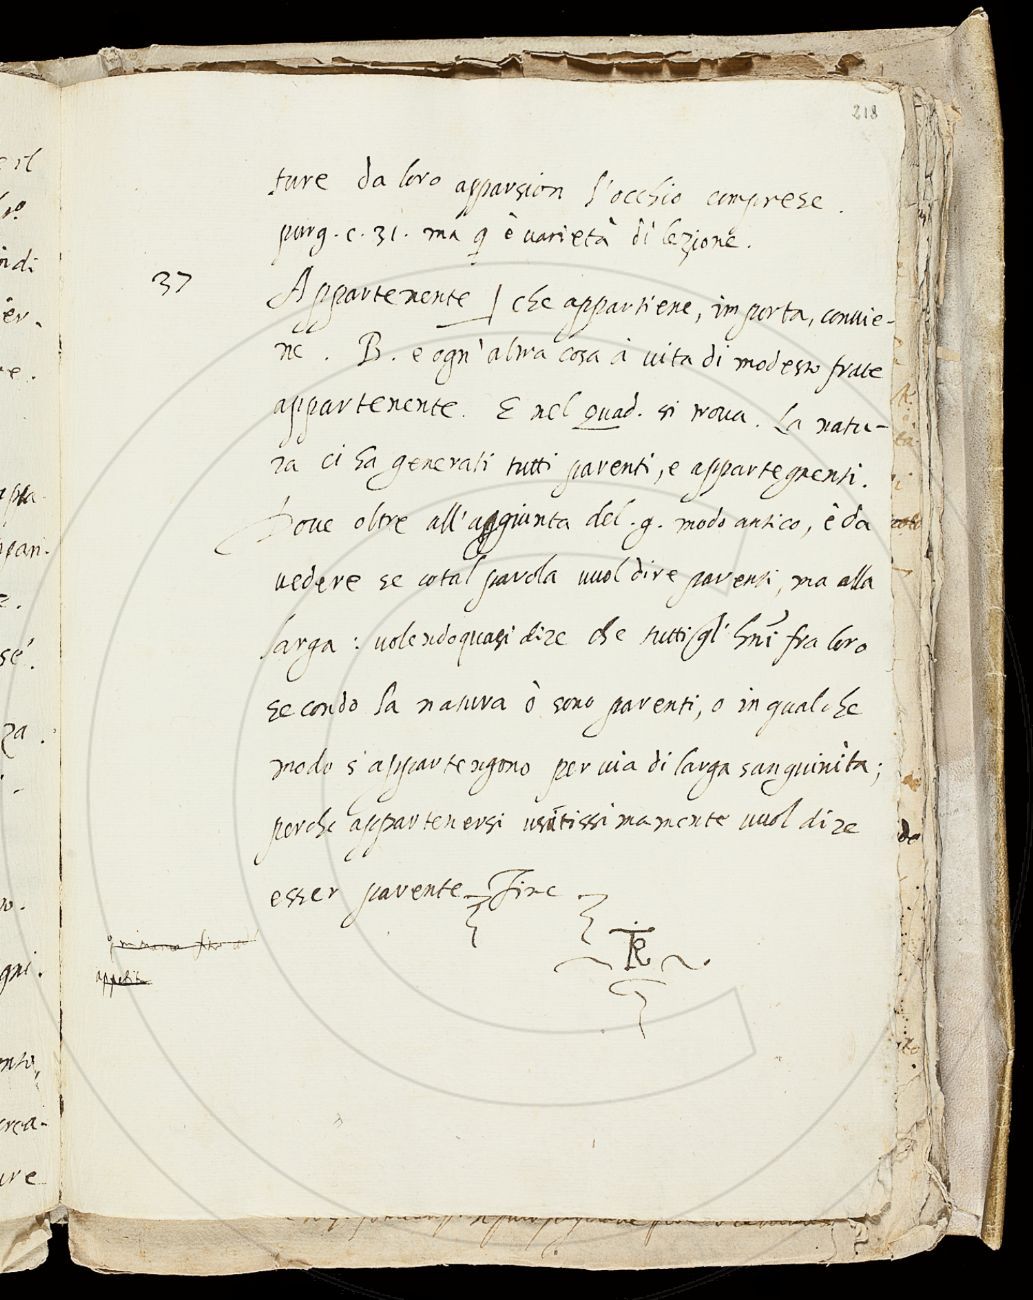 218
ture da loro apparsion l'occhio comprese.
purg. c. 31. ma q̃ è varietà di lezione.
37
Appartenente | che appartiene, importa, convie-
ne. B. e ogn'altra cosa à vita di modesto frate
appartenente. E nel Quad. si trova. La natu-
ra ci ha generati tutti parenti, e appartegnenti.
Dove oltre all'aggiunta del .g. modo antico, è da
vedere se cotal parola vuol dire parenti, ma alla
larga: volendo quasi dire che tutti gl' hñi fra loro
secondo la natura ò sono parenti, o in qualche
modo s'appartengono per via di larga sanguinità;
perche appartenersi usitissimamente vuol dire
esser parente Fine